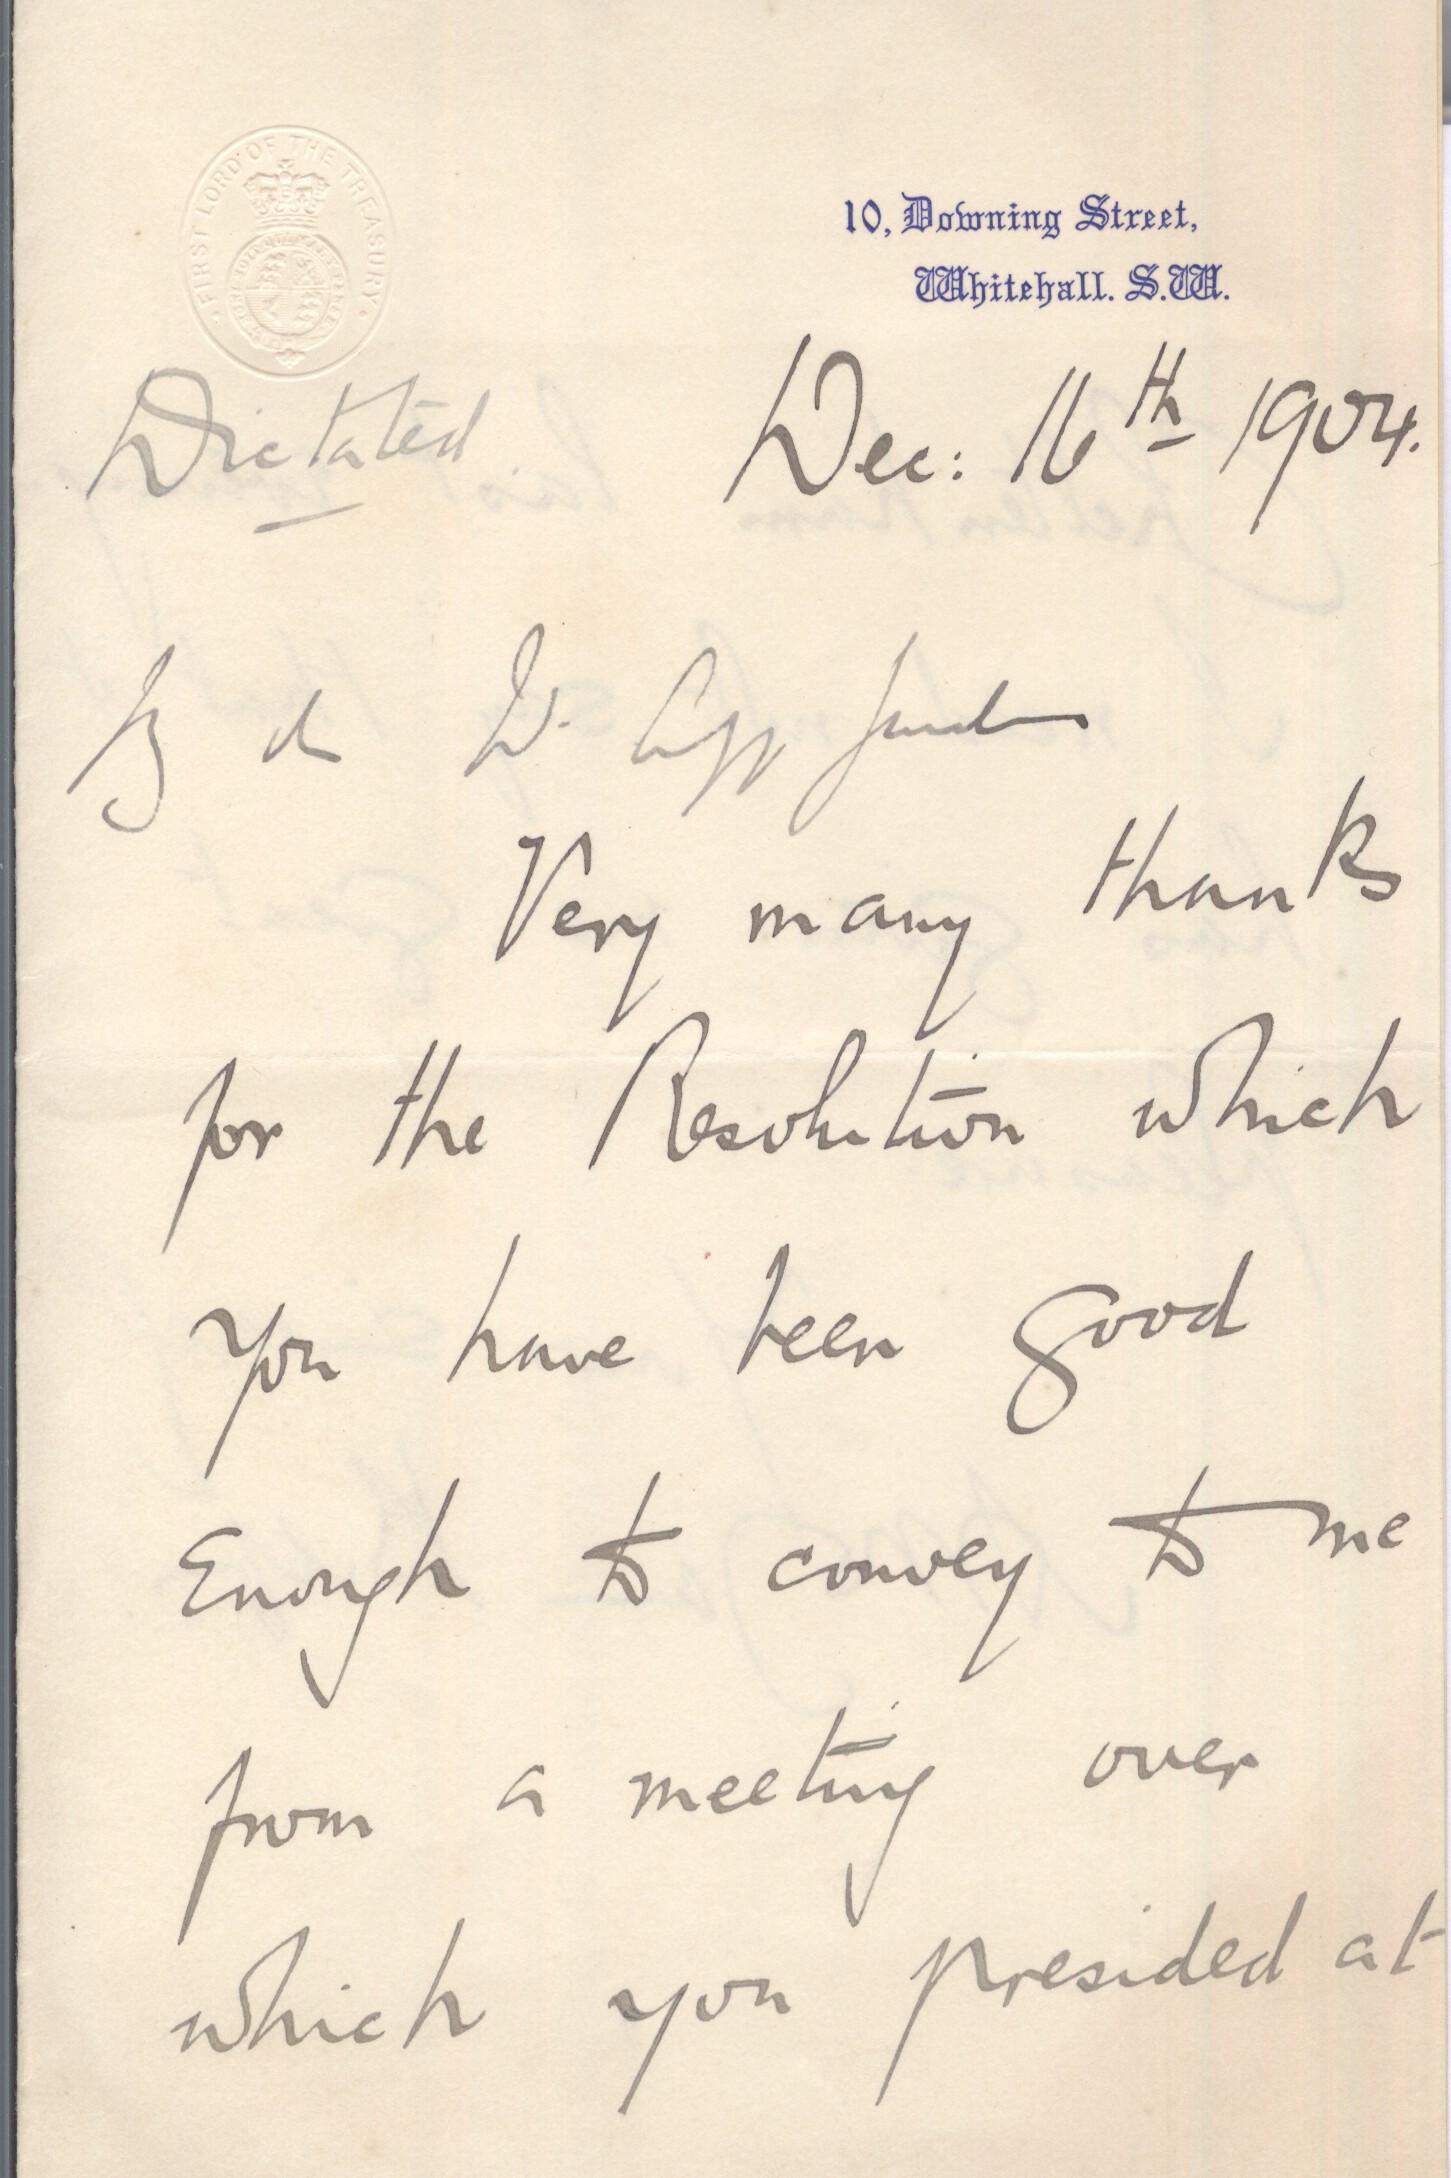 FIRST LORD OF THE TREASURY
10, Downing Street,
Whitehall. S.W.
Dictated
Dec: 16th 1904.
My d
Very many thanks
for the Resolution which
you have been good
Enough to convey to me
from a meeting over
which you presided at